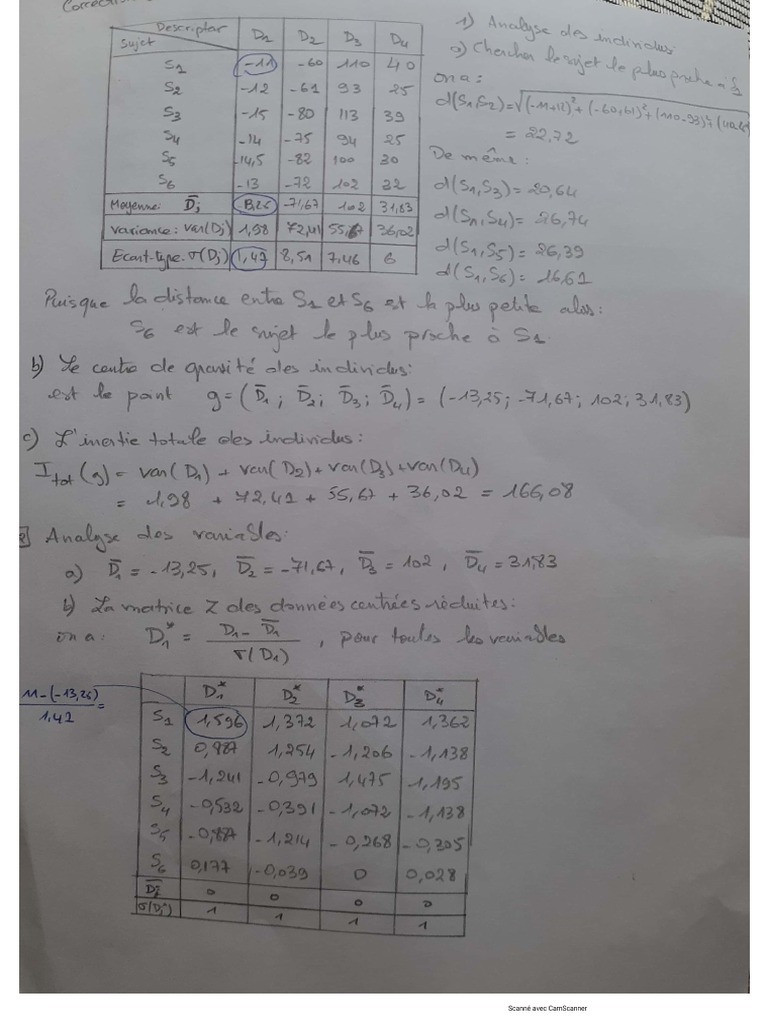 Correction
Descripteur D1 D2 D3 D4
Sujet
S1 -11 -60 110 40
S2 -12 -61 93 25
S3 -15 -80 113 39
S4 -14 -75 94 25
S5 -14,5 -82 100 30
S6 -13 -72 102 32
Moyenne: D̄j -13,25 -71,67 102 31,83
Variance: var(Dj) 1,98 72,41 55,67 36,02
Ecart-type: σ(Dj) 1,42 8,51 7,46 6
1) Analyse des individus
a) Chercher le sujet le plus proche à S1
on a:
d(S1,S2)=√(-11+12)²+(-60+61)²+(110-93)²+(40-25)²
= 22,72
De même:
d(S1,S3)= 20,64
d(S1,S4)= 26,74
d(S1,S5)= 26,39
d(S1,S6)= 16,61
Puisque la distance entre S1 et S6 est la plus petite alors:
S6 est le sujet le plus proche à S1.
b) Le centre de gravité des individus:
est le point g = (D̄1; D̄2; D̄3; D̄4) = (-13,25; -71,67; 102; 31,83)
c) L'inertie totale des individus:
Itot(g) = var(D1) + var(D2) + var(D3) + var(D4)
= 1,98 + 72,41 + 55,67 + 36,02 = 166,08
2] Analyse des variables:
a) D̄1 = -13,25, D̄2 = -71,67, D̄3 = 102, D̄4 = 31,83
b) La matrice Z des données centrées réduites:
on a: D1* = (D1 - D̄1) / σ(D1), pour toutes les variables
11-(-13,25) / 1,42 =
D1* D2* D3* D4*
S1 1,596 1,372 1,072 1,362
S2 0,887 1,254 -1,206 -1,138
S3 -1,241 -0,979 1,475 1,195
S4 -0,532 -0,391 -1,072 -1,138
S5 -0,887 -1,214 -0,268 -0,305
S6 0,177 -0,039 0 0,028
D̄j 0 0 0 0
σ(Dj*) 1 1 1 1
Scanné avec CamScanner